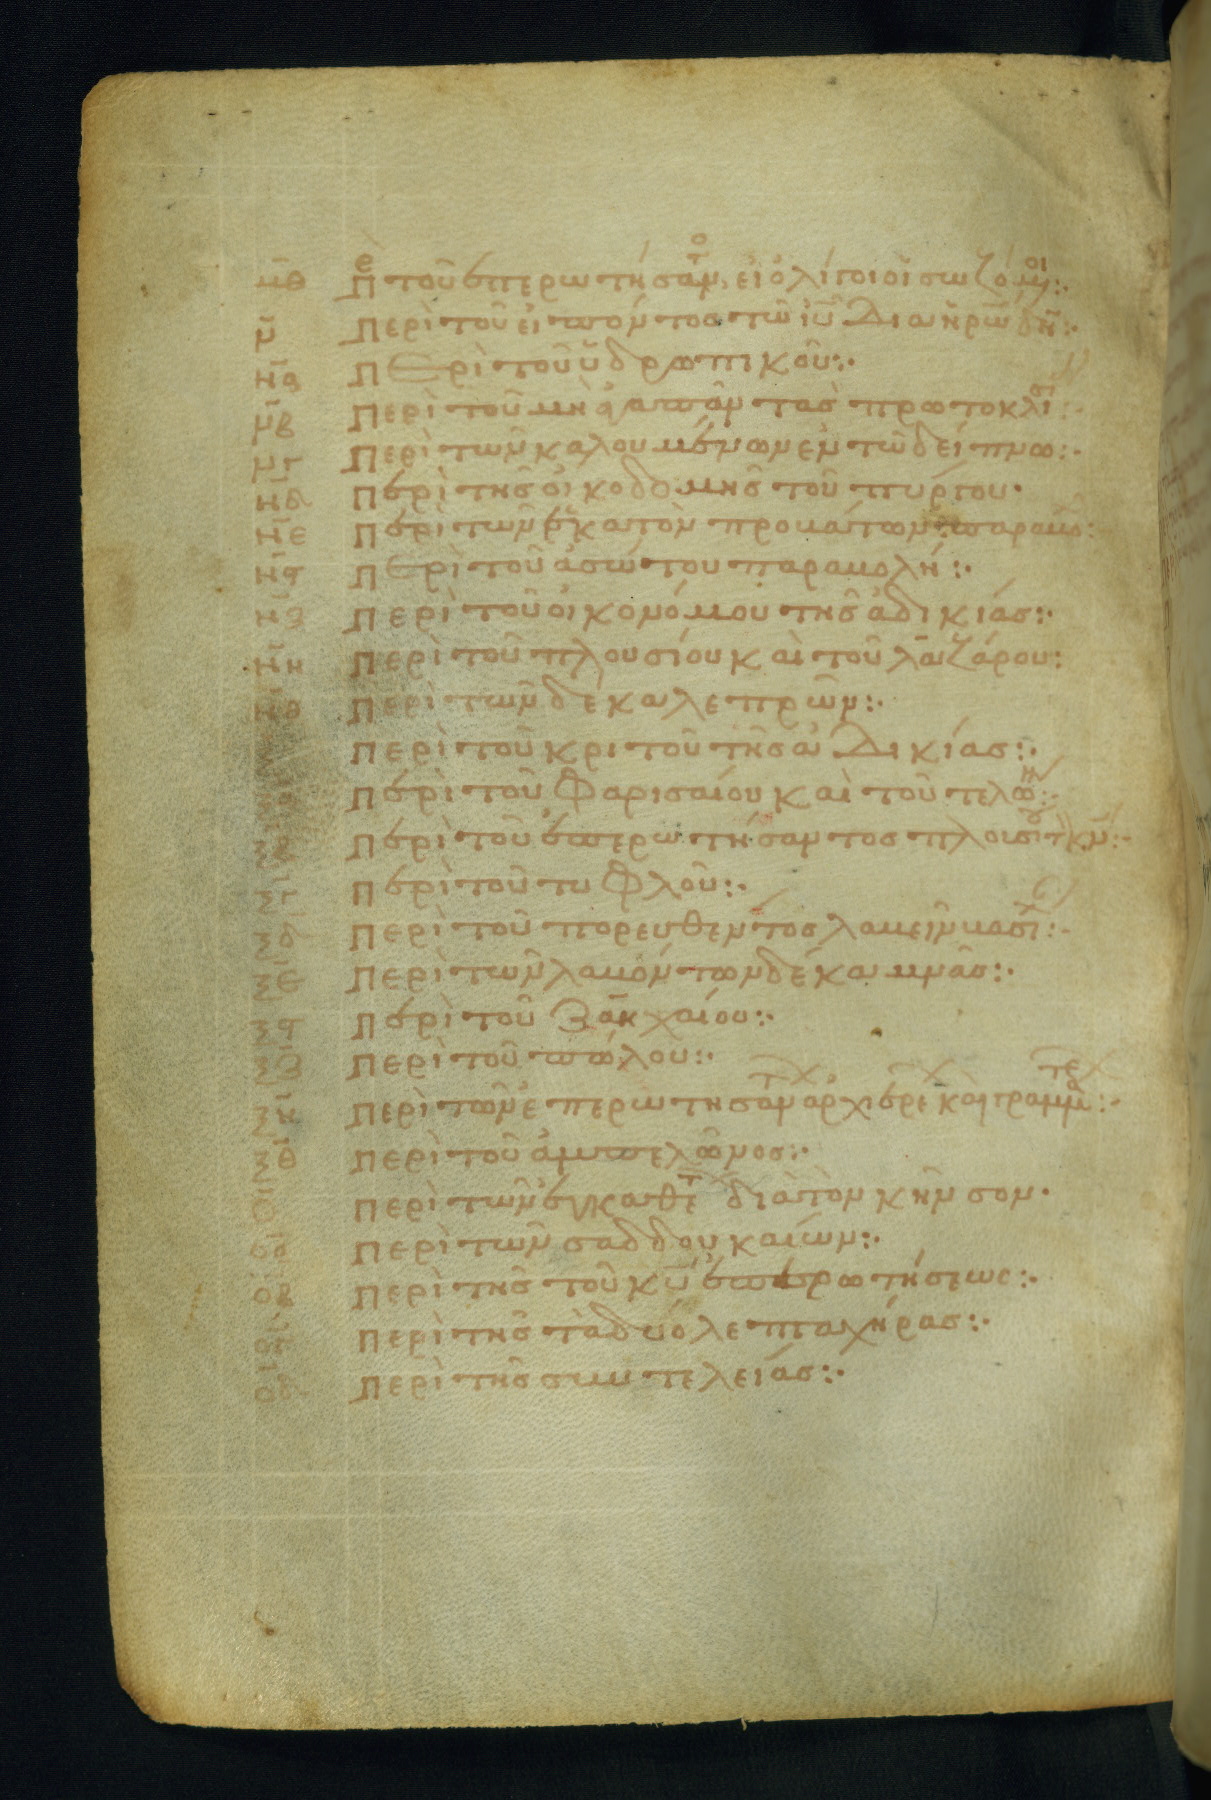 μθ Πε τοῦ ἐπερωτήσαντο εἰ ὀλίγοι οἱ σωζόμοι:·
ν Περὶ τοῦ εἰπόντος τῶ ιῦ δια ηρώδην:·
να Περὶ τοῦ ὑδρωπικοῦ:·
νβ Περὶ τοῦ μὴ ἀγαπᾶν τὰς πρωτοκλισί:·
νγ Περὶ τῶν καλουμένων ἐν τῶ δείπνω:·
νδ Περὶ τῆς οἰκοδομῆς τοῦ πύργου·
νε Περὶ τῶν ἑκατὸν προβάτων παραβο:
νϛ Περὶ τοῦ ἀσώτου παραβολή:·
νζ Περὶ τοῦ οἰκονόμου τῆς ἀδικίας:·
νη Περὶ τοῦ πλουσίου καὶ τοῦ λαζάρου:
νθ Περὶ τῶν δέκα λεπρῶν:·
Περὶ τοῦ κριτοῦ τῆς ἀδικίας:·
Περὶ τοῦ Φαρισαίου καὶ τοῦ τελών:·
ξβ Περὶ τοῦ ἐπερωτήσαντος πλουσί τ κν:·
ξγ Περὶ τοῦ τυφλοῦ:·
ξδ Περὶ τοῦ πορευθέντος λαβεῖν βασι:·
ξε Περὶ τῶν λαβόντων δέκα μνᾶς:·
ξϛ Περὶ τοῦ Ζακχαίου:·
ξζ Περὶ τοῦ πώλου:·
ξη Περὶ τῶν ἐπερωτησαντ ἀρχιερε καὶ γραμμτ:·
ξθ Περὶ τοῦ ἀμπελῶνος:·
ο Περὶ τῶν ἐγκαθετ διὰ τὸν κῆνσον·
οα Περὶ τῶν σαδδουκαίων:·
οβ Περὶ τῆς τοῦ κυ ἐπερωτήσεως:·
ογ Περὶ τῆς τὰ δύο λεπτα χήρας:·
οδ Περὶ τῆς συντελείας:·